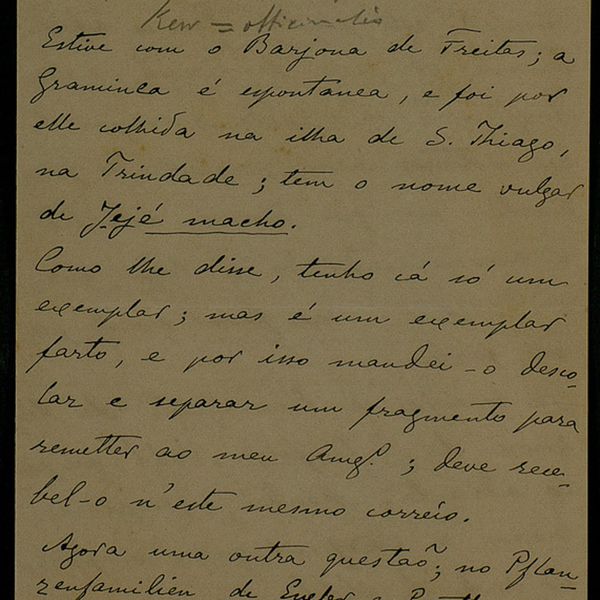 Kew = officinalis
Estive com o Barjona de Freitas; a
Graminea é espontanea, e foi por
elle colhida na ilha de S. Thiago,
na Trindade; tem o nome vulgar
de Jejé macho.
Como lhe disse, tenho cá só um
exemplar; mas é um exemplar
farto, e por isso mandei-o desco-
lar e separar um fragmento para
remetter ao meu Amgº.; deve rece-
bel-o n'este mesmo correio.
Agora uma outra questaõ; no Pflan-
zenfamilien de Engler e